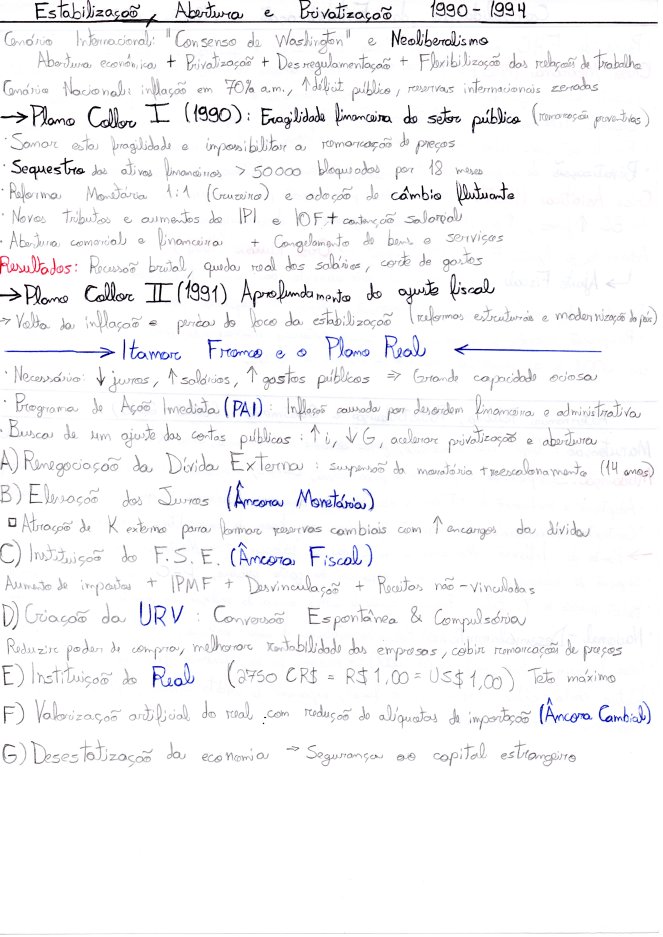 Estabilização, Abertura e Privatização 1990 - 1994
Cenário Internacional: "Consenso de Washington" e Neoliberalismo
Abertura econômica + Privatização + Desregulamentação + Flexibilização das relações de trabalho
Cenário Nacional: inflação em 70% a.m., ↑ déficit público, reservas internacionais zeradas
→ Plano Collor I (1990): Fragilidade financeira do setor público (remarcação preventivas)
· Sanar esta fragilidade e impossibilitar a remarcação de preços
· Sequestro dos ativos financeiros > 50000 bloqueados por 18 meses
· Reforma Monetária 1:1 (Cruzeiro) e adoção de câmbio flutuante
· Novos tributos e aumentos do IPI e IOF + contenção salarial
· Abertura comercial e financeira + Congelamento de bens e serviços
Resultados: Recessão brutal, queda real dos salários, corte de gastos
→ Plano Collor II (1991) Aprofundamento do ajuste fiscal
→ Volta da inflação e perda do foco da estabilização (reformas estruturais e modernização do país)
→ Itamar Franco e o Plano Real ←
· Necessário: ↓ juros, ↑ salários, ↑ gastos públicos ⇒ Grande capacidade ociosa
· Programa de Ação Imediata (PAI): Inflação causada por desordem financeira e administrativa
· Busca de um ajuste das contas públicas: ↑ i, ↓ G, acelerar privatização e abertura
A) Renegociação da Dívida Externa: suspensão da moratória + reescalonamento (14 anos)
B) Elevação dos Juros (Âncora Monetária)
□ Atração de K externo para formar reservas cambiais com ↑ encargos da dívida
C) Instituição do F.S.E. (Âncora Fiscal)
Aumento de impostos + IPMF + Desvinculação + Receitas não-vinculadas
D) Criação da URV: Conversão Espontânea & Compulsória
Reduzir poder de compra, melhorar rentabilidade das empresas, coibir remarcação de preços
E) Instituição do Real (2750 CR$ = R$ 1,00 = US$ 1,00) Teto máximo
F) Valorização artificial do real com redução de alíquotas de importação (Âncora Cambial)
G) Desestatização da economia → Segurança ao capital estrangeiro